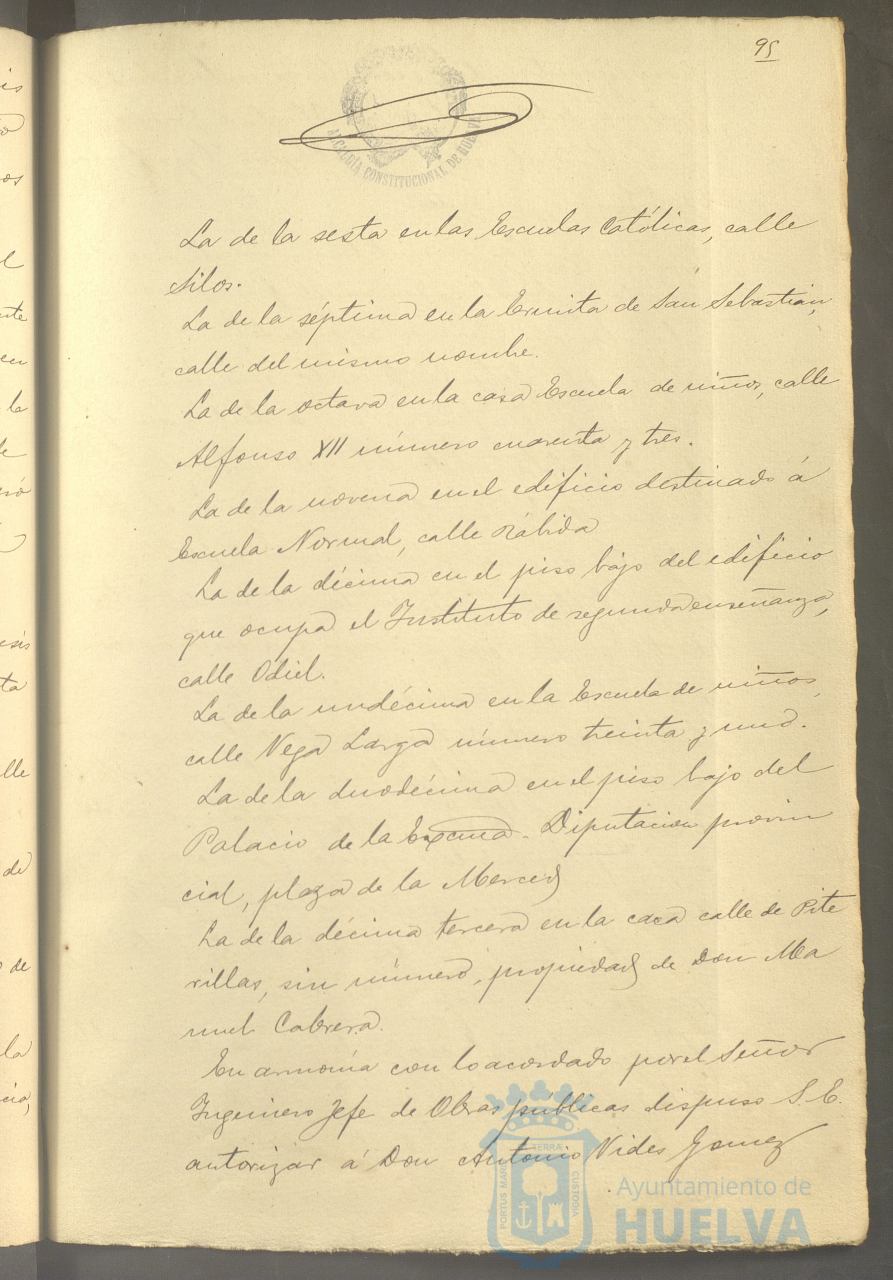 95
ALCALDÍA CONSTITUCIONAL DE HUELVA
La de la sesta en las Escuelas Católicas, calle
Silos.
La de la séptima en la Ermita de San Sebastián,
calle del mismo nombre.
La de la octava en la casa Escuela de niños, calle
Alfonso XII número cuarenta y tres.
La de la novena en el edificio destinado á
Escuela Normal, calle Rábida
La de la décima en el piso bajo del edificio
que ocupa el Instituto de segunda enseñanza,
calle Odiel.
La de la undécima en la Escuela de niños,
calle Vega Larga número treinta y uno.
La de la duodécima en el piso bajo del
Palacio de la Excma. Diputacion provin
cial, plaza de la Merced
La de la décima tercera en la casa calle de Pite
rillas, sin número, propiedad de Don Ma
nuel Cabrera.
En armonía con lo acordado por el Señor
Ingeniero Jefe de Obras públicas dispuso S. E.
autorizar á Don Antonio Vides Gomez
PORTUS MARIS ET TERRAE CUSTODIA
Ayuntamiento de
HUELVA